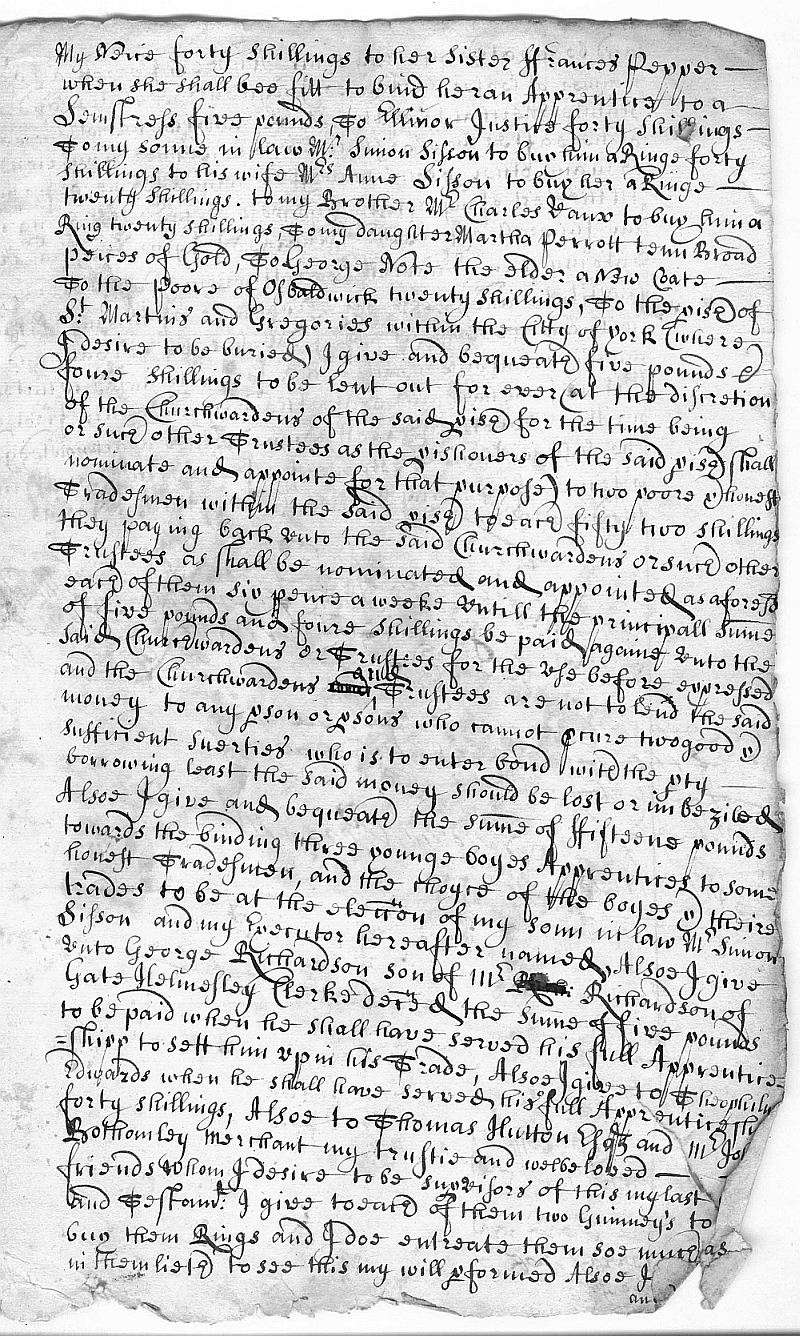 My Neice forty shillings to her sister Ffrances Pepper
when she shall bee fitt to bind her an Apprentice to a
Semstress five pounds, To Ellinor Justice forty shillings
To my sonne in law Mr. Simon Sisson to buy him a Ringe forty
shillings to his wife Mrs Anne Sisson to buy her a Ringe
twenty shillings. to my Brother Mr Charles Vaux to buy him a
Ring twenty shillings, To my daughter Martha Perrott tenn Broad
peices of Gold, To George Note the elder a New Coate
To the poore of Osbaldwick twenty shillings, To the pish of
St. Martins and Gregories within the Citty of york (where
I desire to be buried) I give and bequeath five pounds &
foure shillings to be lent out for ever (at the discretion
of the Churchwardens of the said pish for the time being
or such other Trustees as the pishoners of the said pish shall
nominate and appointe for that purpose) to two poore & honest
Tradesmen within the said pish to each fifty two shillings
they paying back vnto the said Churchwardens or such other
Trustees as shall be nominated and appointed as aforesd
each of them six pence a weeke vntill the principall sume
of five pounds and foure shillings be paid againe vnto the
said Churchwardens or Trustees for the vse before expressed
and the Churchwardens and Trustees are not to lend the said
money to any pson or psons who cannot pcure two good &
sufficient suerties who is to enter bond with the pty
borrowing least the said money should be lost or imbeziled
Alsoe I give and bequeath the sume of Ffifteene pounds
towards the binding three younge boyes Apprentices to some
honest Tradesmen, and the choyce of the boyes & theire
trades to be at the eleccon of my sonn in law Mr Simon
Sisson and my Executor hereafter named, Alsoe I give
vnto George Richardson son of Mr Richardson of
Gate Helmesley Clerke deced the sume of five pounds
to be paid when he shall have served his full Apprentice=
=shipp to sett him vp in his Trade, Alsoe I give to Theophilus
Edwards when he shall have served his full Apprenticeship
forty shillings, Alsoe to Thomas Hutton Esqz and Mr Jos
Bothomley Merchant my trustie and welbeloved
friends whom I desire to be supvisors of this my last
and Testamt. I give to each of them two Guinney's to
buy them Rings and I doe entreate them soe much as
in them lieth to see this my will pformed Alsoe I
and